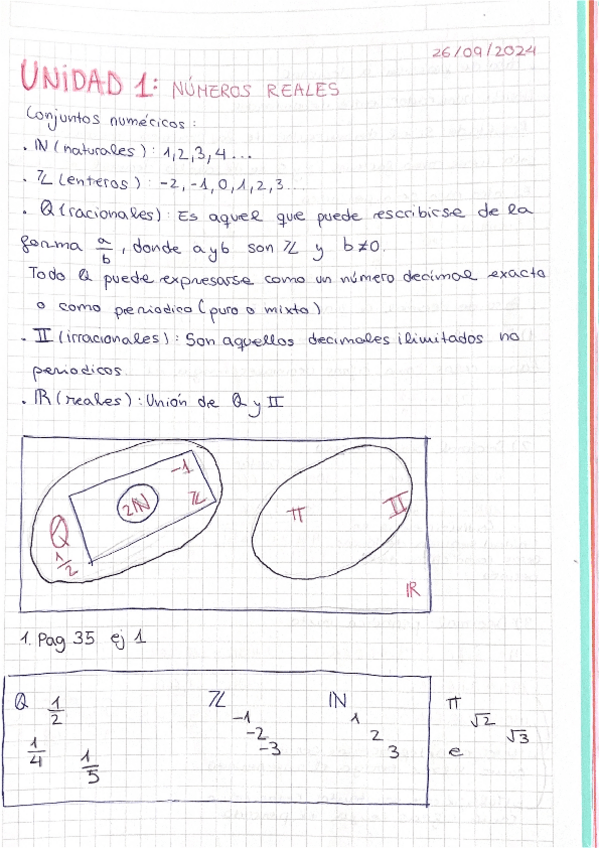 26/09/2024
UNIDAD 1: NÚMEROS REALES
Conjuntos numéricos:
. ℕ (naturales): 1,2,3,4...
. ℤ (enteros): -2,-1,0,1,2,3...
. Q (racionales): Es aquel que puede escribirse de la
forma a/b, donde a y b son ℤ y b≠0.
Todo Q puede expresarse como un número decimal exacto
o como periodico (puro o mixto)
. II (irracionales): Son aquellos decimales ilimitados no
periodicos
. ℝ (reales): Unión de Q y II
-1
2ℕ ℤ
π II
Q
1/2
ℝ
1. Pag 35 ej 1
Q 1/2 ℤ ℕ π
-1 1 √2
-2 2 √3
1/4 1/5 -3 3 e